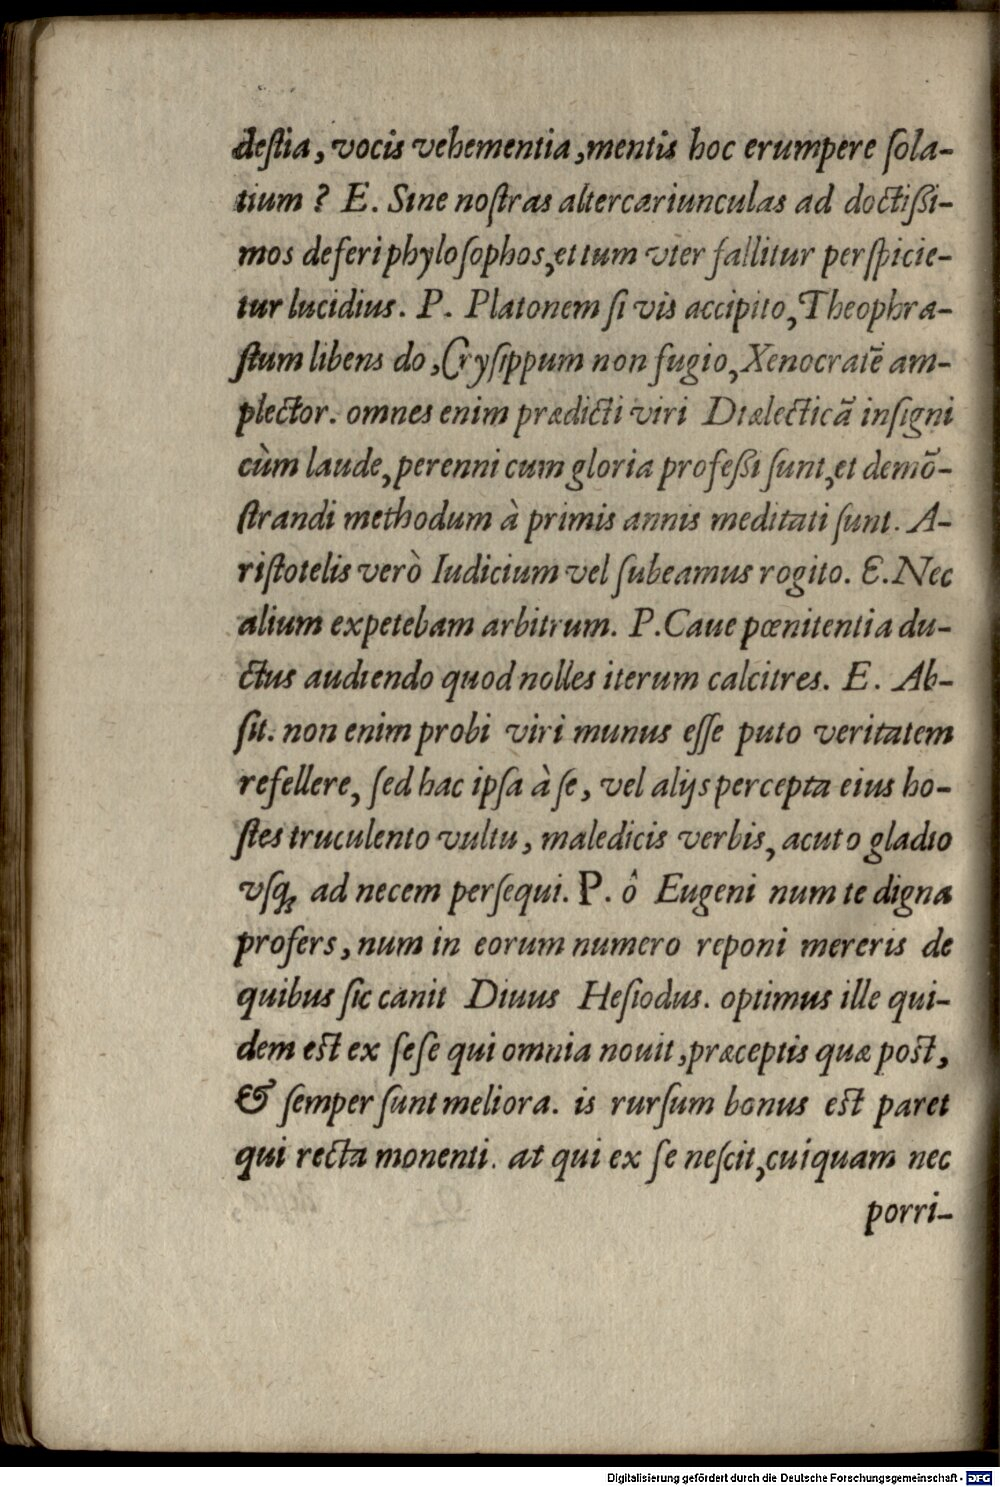 deſtia, vocis vehementia, mentis hoc erumpere ſola-
tium ? E. Sine noſtras altercariunculas ad doctiſſi-
mos deferi phyloſophos, et tum vter fallitur perſpicie-
tur lucidius. P. Platonem ſi vis accipito, Theophra-
ſtum libens do, Cryſippum non fugio, Xenocratē am-
plector. omnes enim prædicti viri Diælecticā inſigni
cùm laude, perenni cum gloria profeßi ſunt, et demō-
ſtrandi methodum à primis annis meditati ſunt. A-
riſtotelis verò Iudicium vel ſubeamus rogito. E. Nec
alium expetebam arbitrum. P. Caue pœnitentia du-
ctus audiendo quod nolles iterum calcitres. E. Ab-
ſit. non enim probi viri munus eſſe puto veritatem
refellere, ſed hac ipſa à ſe, vel alijs percepta eius ho-
ſtes truculento vultu, maledicis verbis, acuto gladio
vſq; ad necem perſequi. P. ô Eugeni num te digna
profers, num in eorum numero reponi mereris de
quibus ſic canit Diuus Heſiodus. optimus ille qui-
dem eſt ex ſeſe qui omnia nouit, præceptis quæ poſt,
& ſemper ſunt meliora. is rurſum bonus eſt paret
qui recta monenti. at qui ex ſe neſcit, cuiquam nec
porri-
Digitalisierung gefördert durch die Deutsche Forschungsgemeinschaft - DFG